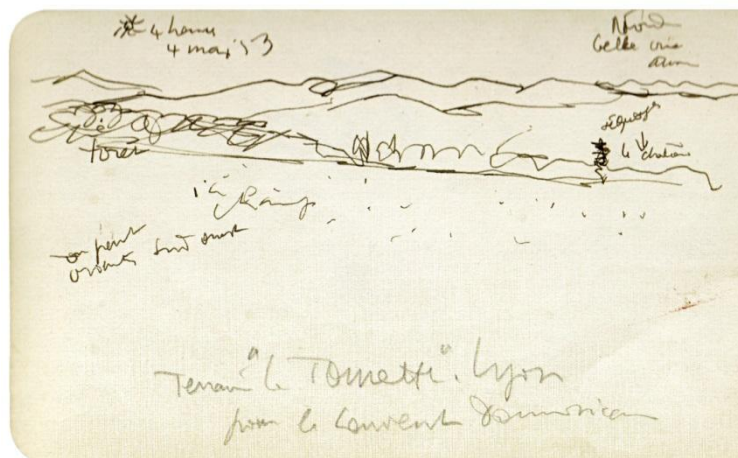 4 heures
4 mai 53
Nord
belle vue
forêt
séquoya
le château
ici
champ
on peut
sud ouest
Terrain "la Tourette". Lyon
pour le Couvent Dominicain